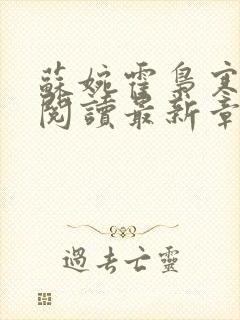 蘇婉霍梟寒
閱讀最新章
過去亡靈